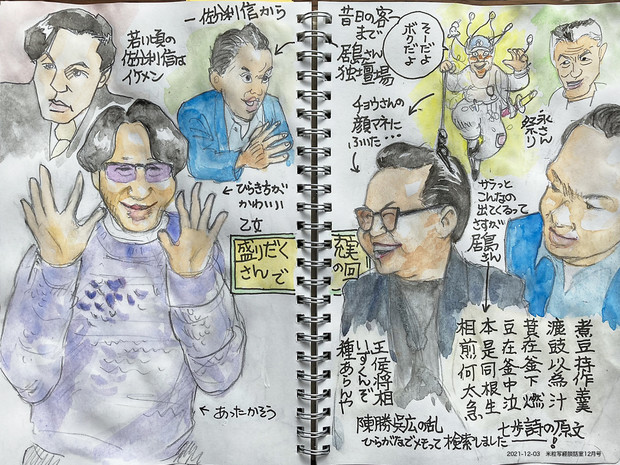 佐分利信から
若い頃の
佐分利信は
イケメン
ひらき方が
かわいい
乙女
盛りだく
さんで
あったかそう
昔日の客
まで
居島さん
独壇場
そーだよ
ボクだよ
チョウさんの
顔マネに
ふいた…
永さん
祭り
サラッと
こんなの
出てくるって
さすが
居島さん
充実
の回
煮豆持作羹
漉豉以為汁
萁在釜下燃
豆在釜中泣
本是同根生
相煎何太急
七歩詩の原文!
王侯将相
いずくんぞ
種あらんや
陳勝呉広の乱
ひらがなでメモって検索しました
2021-12-03 米粒写経談話室12月号